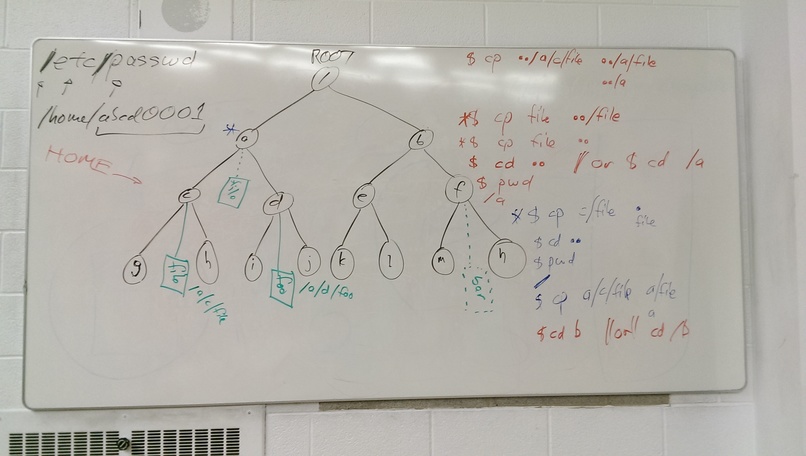 /etc/passwd
/home/abcd0001
HOME
ROOT
/
a
b
c
d
e
f
file
g
h
i
j
k
l
m
n
file
/a/c/file
foo
/a/d/foo
bar
$ cp ../a/c/file ../a/file
../a
*$ cp file ../file
*$ cp file ..
$ cd .. // or $ cd /a
$ pwd
/a
*$ cp c/file . file
$ cd ..
$ pwd
/
$ cp a/c/file a/file
a
$ cd b "or" cd /b